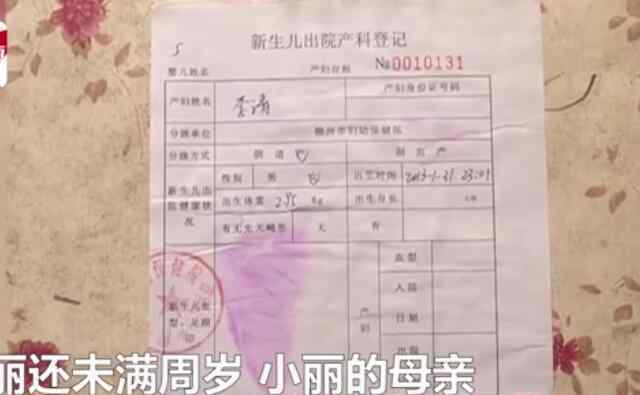 5
新生儿出院产科登记
婴儿姓名 产妇存根 №0010131
产妇姓名 李清 产妇身份证号码
分娩单位 柳州市妇幼保健院
分娩方式 阴道 剖宫产
新生儿出院健康状况
性别 男 出生时间 2013-1-31
出生体重 2.85 Kg 出生身长 cm
有无先天畸形 无 有
新生儿血型、足跟印
产妇
血型
入院
日期
出院
丽还未满周岁 小丽的母亲